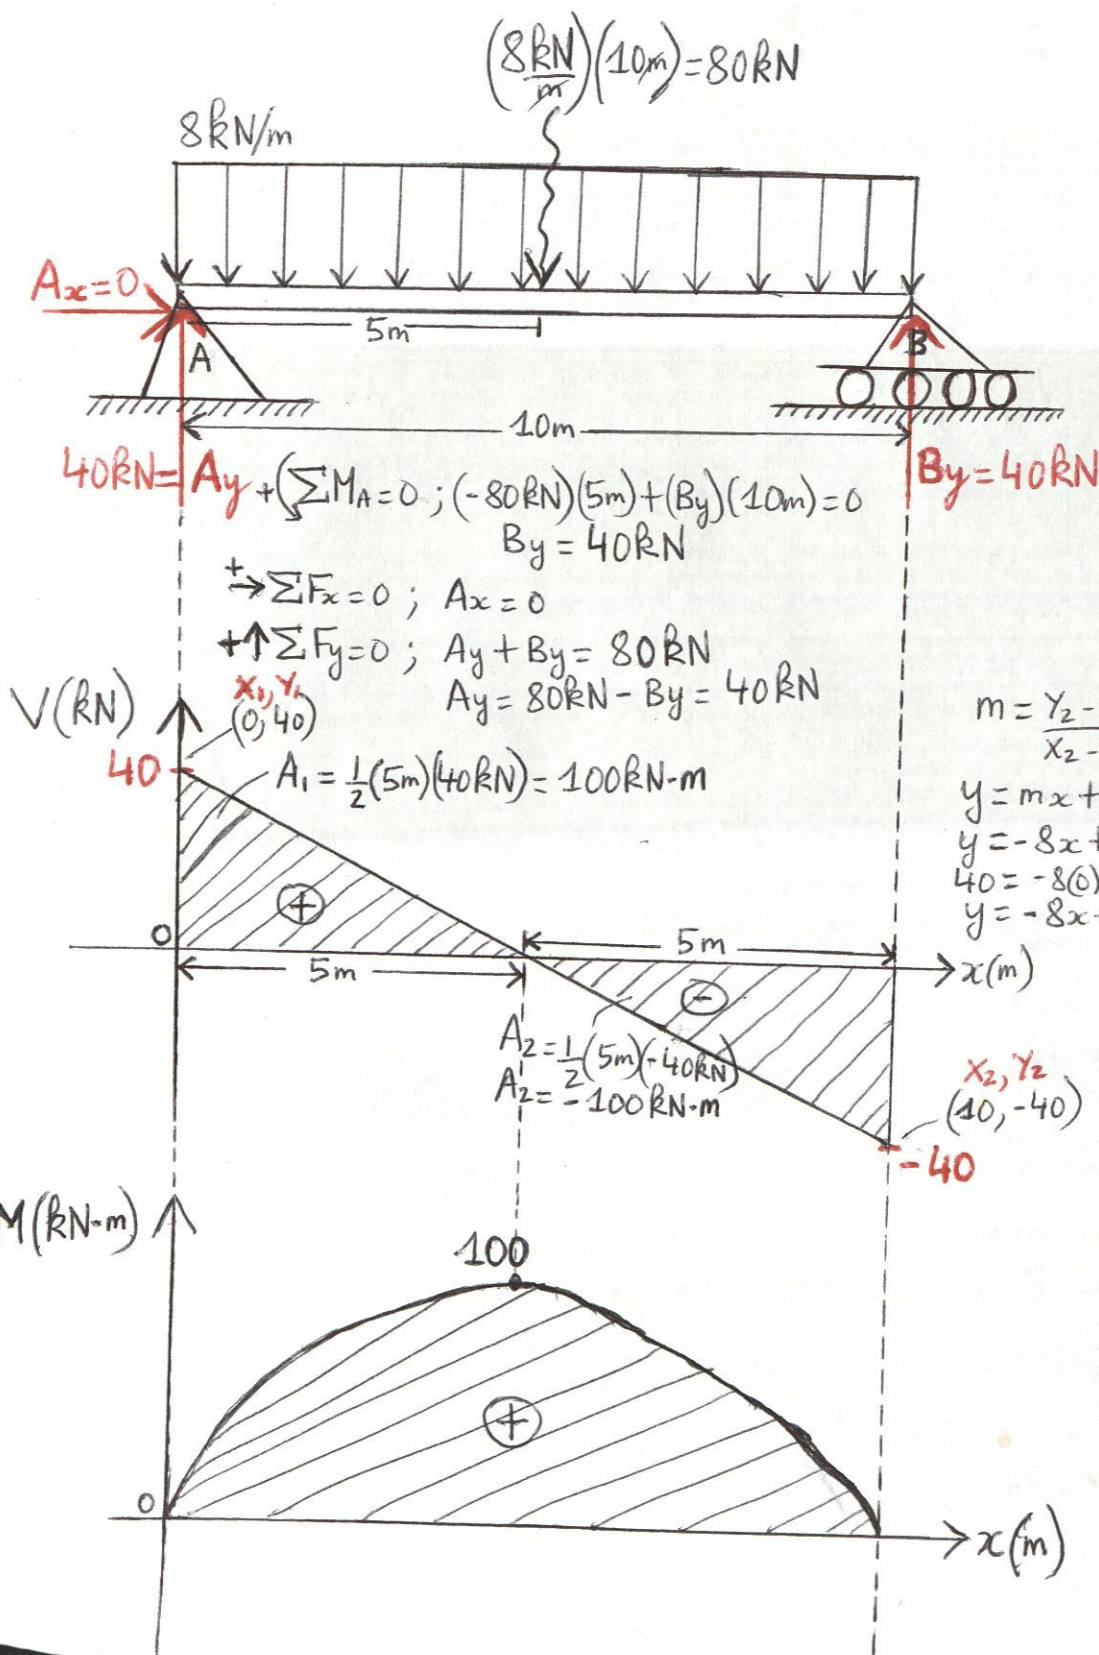 (8kN/m)(10m)=80kN
8kN/m
Ax=0
5m
A
B
10m
40kN=Ay
By=40kN
+(ΣMA=0; (-80kN)(5m)+(By)(10m)=0
By=40kN
+→ΣFx=0; Ax=0
+↑ΣFy=0; Ay+By=80kN
Ay=80kN-By=40kN
V(kN)
X1,Y1
(0,40)
40
A1=1/2(5m)(40kN)=100kN-m
m=Y2-
X2-
y=mx+
y=-8x+
40=-8(0)
y=-8x-
+
0
5m
5m
x(m)
-
A2=1/2(5m)(-40kN)
A2=-100kN-m
X2,Y2
(10,-40)
-40
M(kN-m)
100
+
0
x(m)